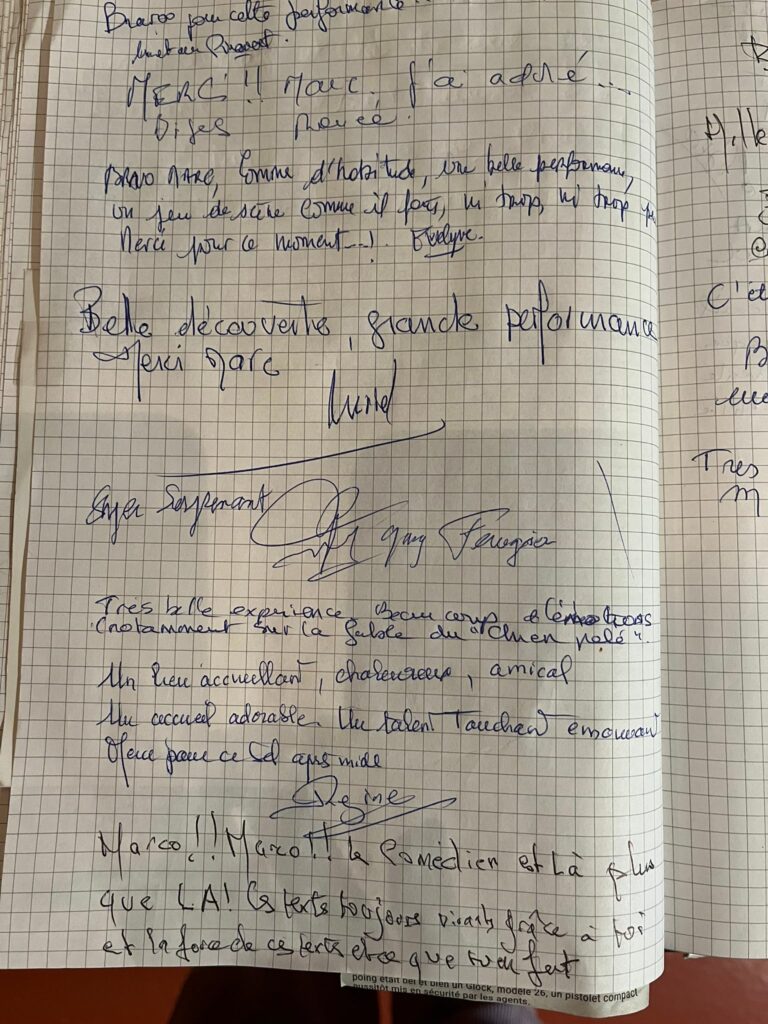 Bravo pour cette performance
MERCI !! Marc. J'ai adoré ....
Bravo MARC, Comme d'habitude, une belle performance,
un jeu de scène comme il faut, ni trop, ni trop p
Merci pour ce moment---! Evelyne.
Belle découverte, grande performance
Merci Marc
Muriel
Super Surprenant
Guy
Très belle expérience. Beaucoup d'émotions
(notamment sur la fable du "Chien pelé".
Un lieu accueillant, chaleureux, amical
Un accueil adorable. Un talent Touchant émouvant
Merci pour ce bel après midi
Régine
Marco!! Marco!! le Comédien est Là plus
que LA! Ces texts toujours vivants grâce à toi
et la force de ces texts et ce que tu en fait
poing était bel et bien un Glock, modèle 26, un pistolet compact
aussitôt mis en sécurité par les agents.
Mille
C'et
B
Tres
m